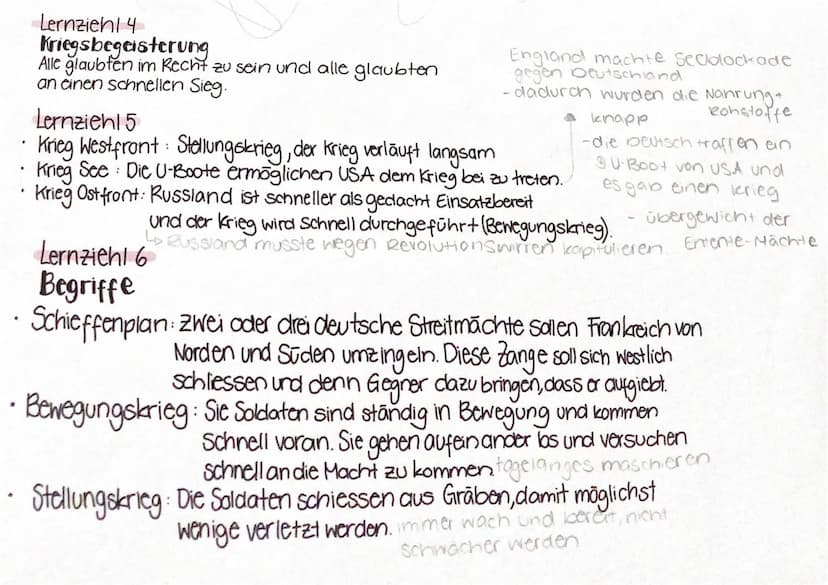 Lernziehl 4
Kriegsbegeisterung
Alle glaubten im Recht zu sein und alle glaubten
an einen schnellen Sieg.
Lernziehl 5
· Krieg Westfront : Stellungskrieg, der Krieg verläuft langsam
· Krieg See : Die U-Boote ermöglichen USA dem Krieg bei zu treten.
· Krieg Ostfront : Russland ist schneller als gedacht Einsatzbereit
und der Krieg wird schnell durchgeführt (Bewegungskrieg).
↳ Russland musste wegen Revolutionswirren kapitulieren
England machte Seeblockade
gegen Deutschland
- dadurch wurden die Nahrung +
Rohstoffe
knapp
- die Deutsch traffen ein
U-Boot von USA und
es gab einen krieg
- übergewicht der
Entente-Mächte
Lernziehl 6
Begriffe
· Schieffenplan : Zwei oder drei deutsche Streitmächte sollen Frankreich von
Norden und Süden umzingeln. Diese Zange soll sich westlich
schliessen und denn Gegner dazu bringen, dass er aufgiebt.
· Bewegungskrieg : Sie Soldaten sind ständig in Bewegung und kommen
schnell voran. Sie gehen aufeinander los und versuchen
schnell an die Macht zu kommen. tagelanges maschieren
· Stellungskrieg : Die Soldaten schiessen aus Gräben, damit möglichst
wenige verletzt werden. immer wach und bereit, nicht
schwächer werden